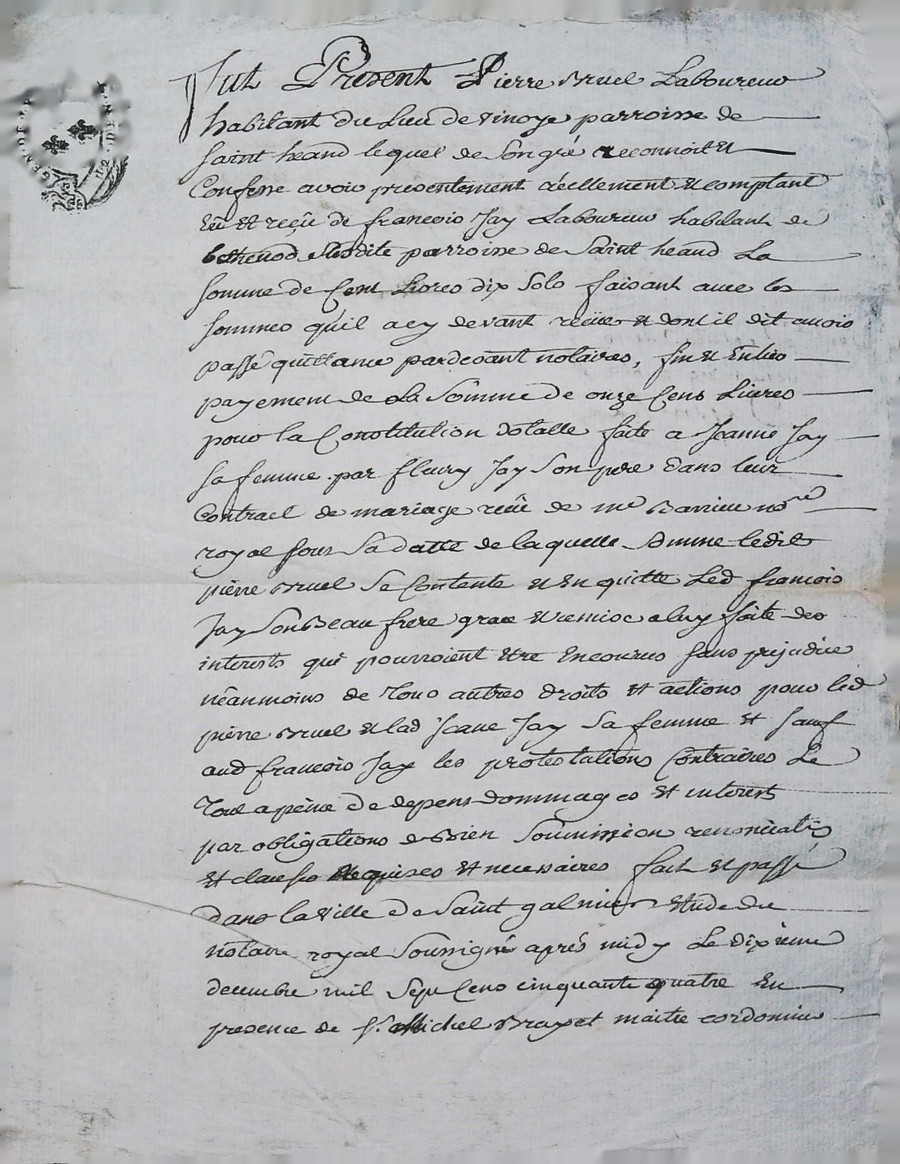 fut Present Pierre Bruel Laboureur
habitant du Lieu de Vinoye parroisse de
saint heand lequel de Son gré reconnoit Et
Confesse avoir presentement réellement Et comptant
Eû Et reçû de francois Jay Laboureur habitant de
bethenod susdite parroisse de Saint heand La
somme de Cent Livres dix Sols faisant avec les
sommes qu'il a cy devant reçües Et dont il dit avoir
passé quittance pardevant notaires, fin Et Entier
payement de La Somme de onze Cens Livres
pour la Constitution dotalle faite a Jeanne Jay
sa femme par fleury Jay Son pere dans leur
Contract de mariage reçû de me no.re
royal sous Sa datte de laquelle Somme ledit
pierre Bruel Se Contente Et En quitte Led francois
Jay Son Beau frere grace Et remise a luy faite des
interests qui pourroient Etre Encourus sans prejudice
nëanmoins de Tous autres droits Et actions pour led
pierre Bruel Et lad Jeanne Jay Sa femme Et sauf
aud francois Jay les protestations Contraires Le
Tout a peine de depens dommages Et interest
par obligations de Bien Soûmission renonciat.s
Et clauses Requises Et necessaires fait Et passé
dans la Ville de Saint galmier Etude du
notaire royal Soussigné aprés midy Le dixieme
decembre mil Sept Cens cinquante quatre En
presence de s.r Michel Brayet maitre cordonnier